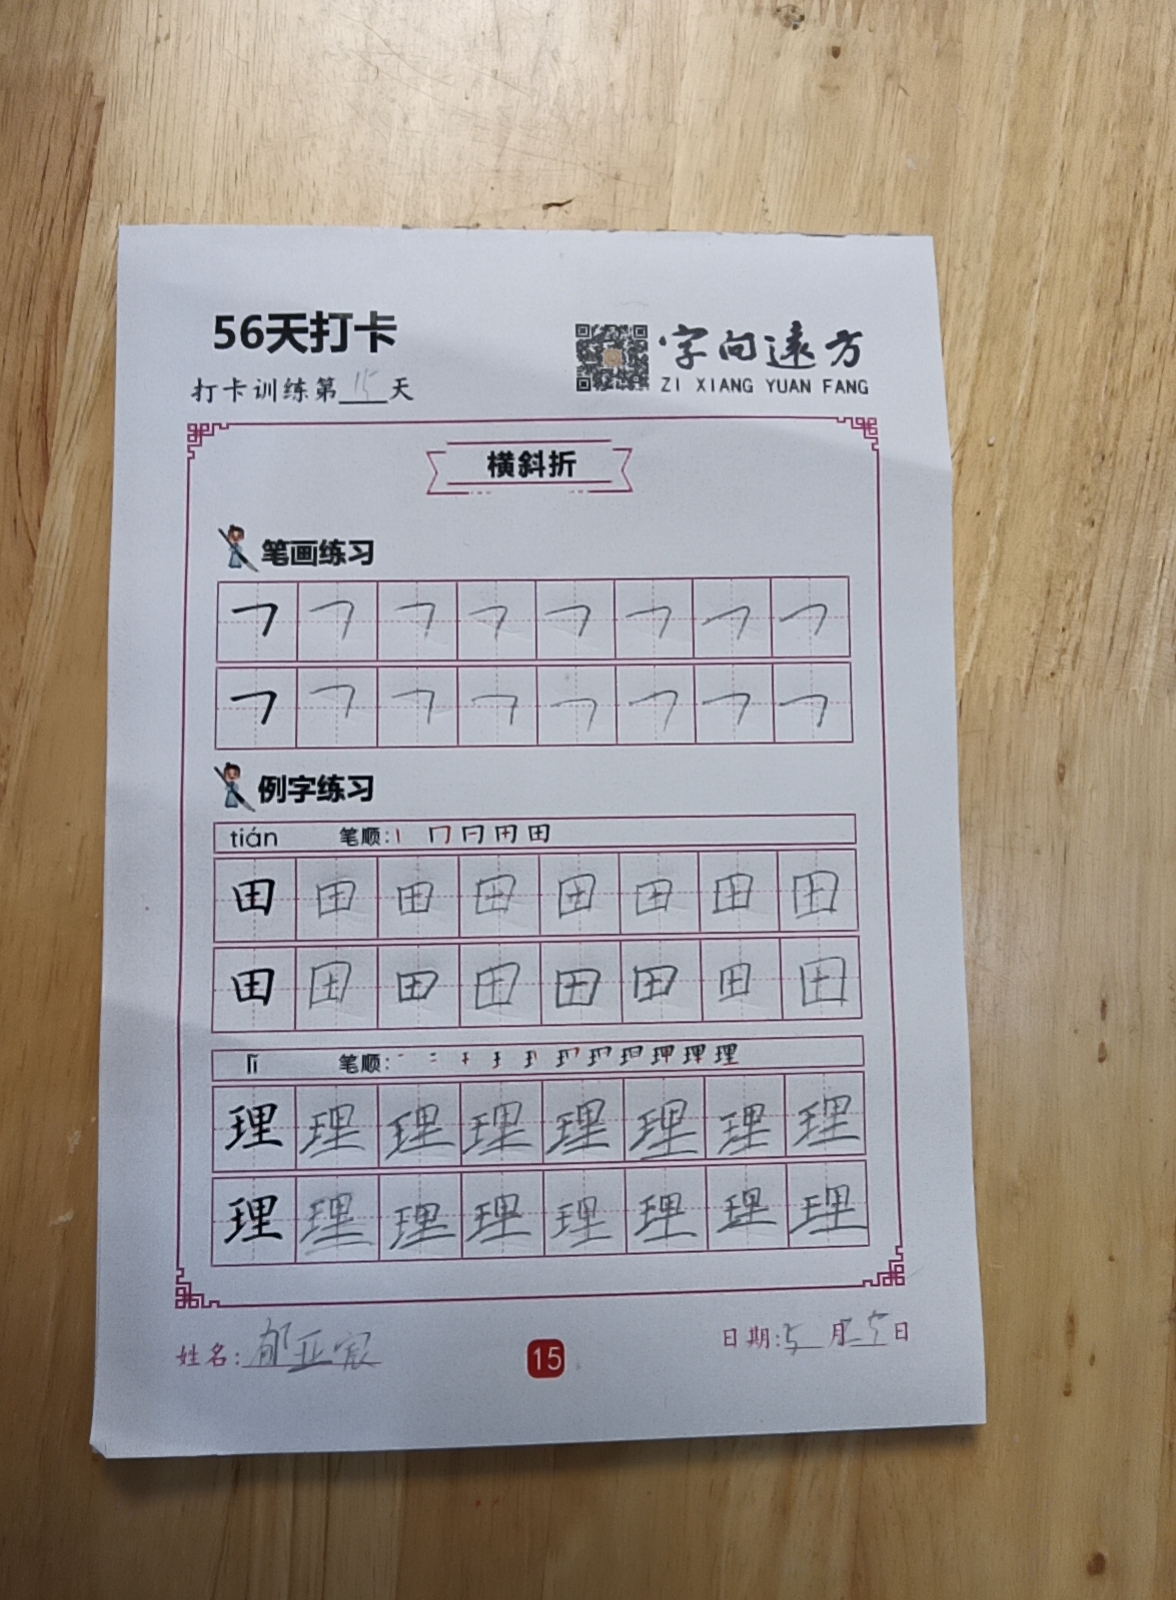 56天打卡
字向远方
ZI XIANG YUAN FANG
打卡训练第15天
横斜折
笔画练习
例字练习
tián 笔顺: 丨 冂 日 田 田
田 田 田 田 田 田 田 田
田 田 田 田 田 田 田 田
lǐ 笔顺:
理 理 理 理 理 理 理 理
理 理 理 理 理 理 理 理
姓名: 郁亚宸
15
日期: 5月5日